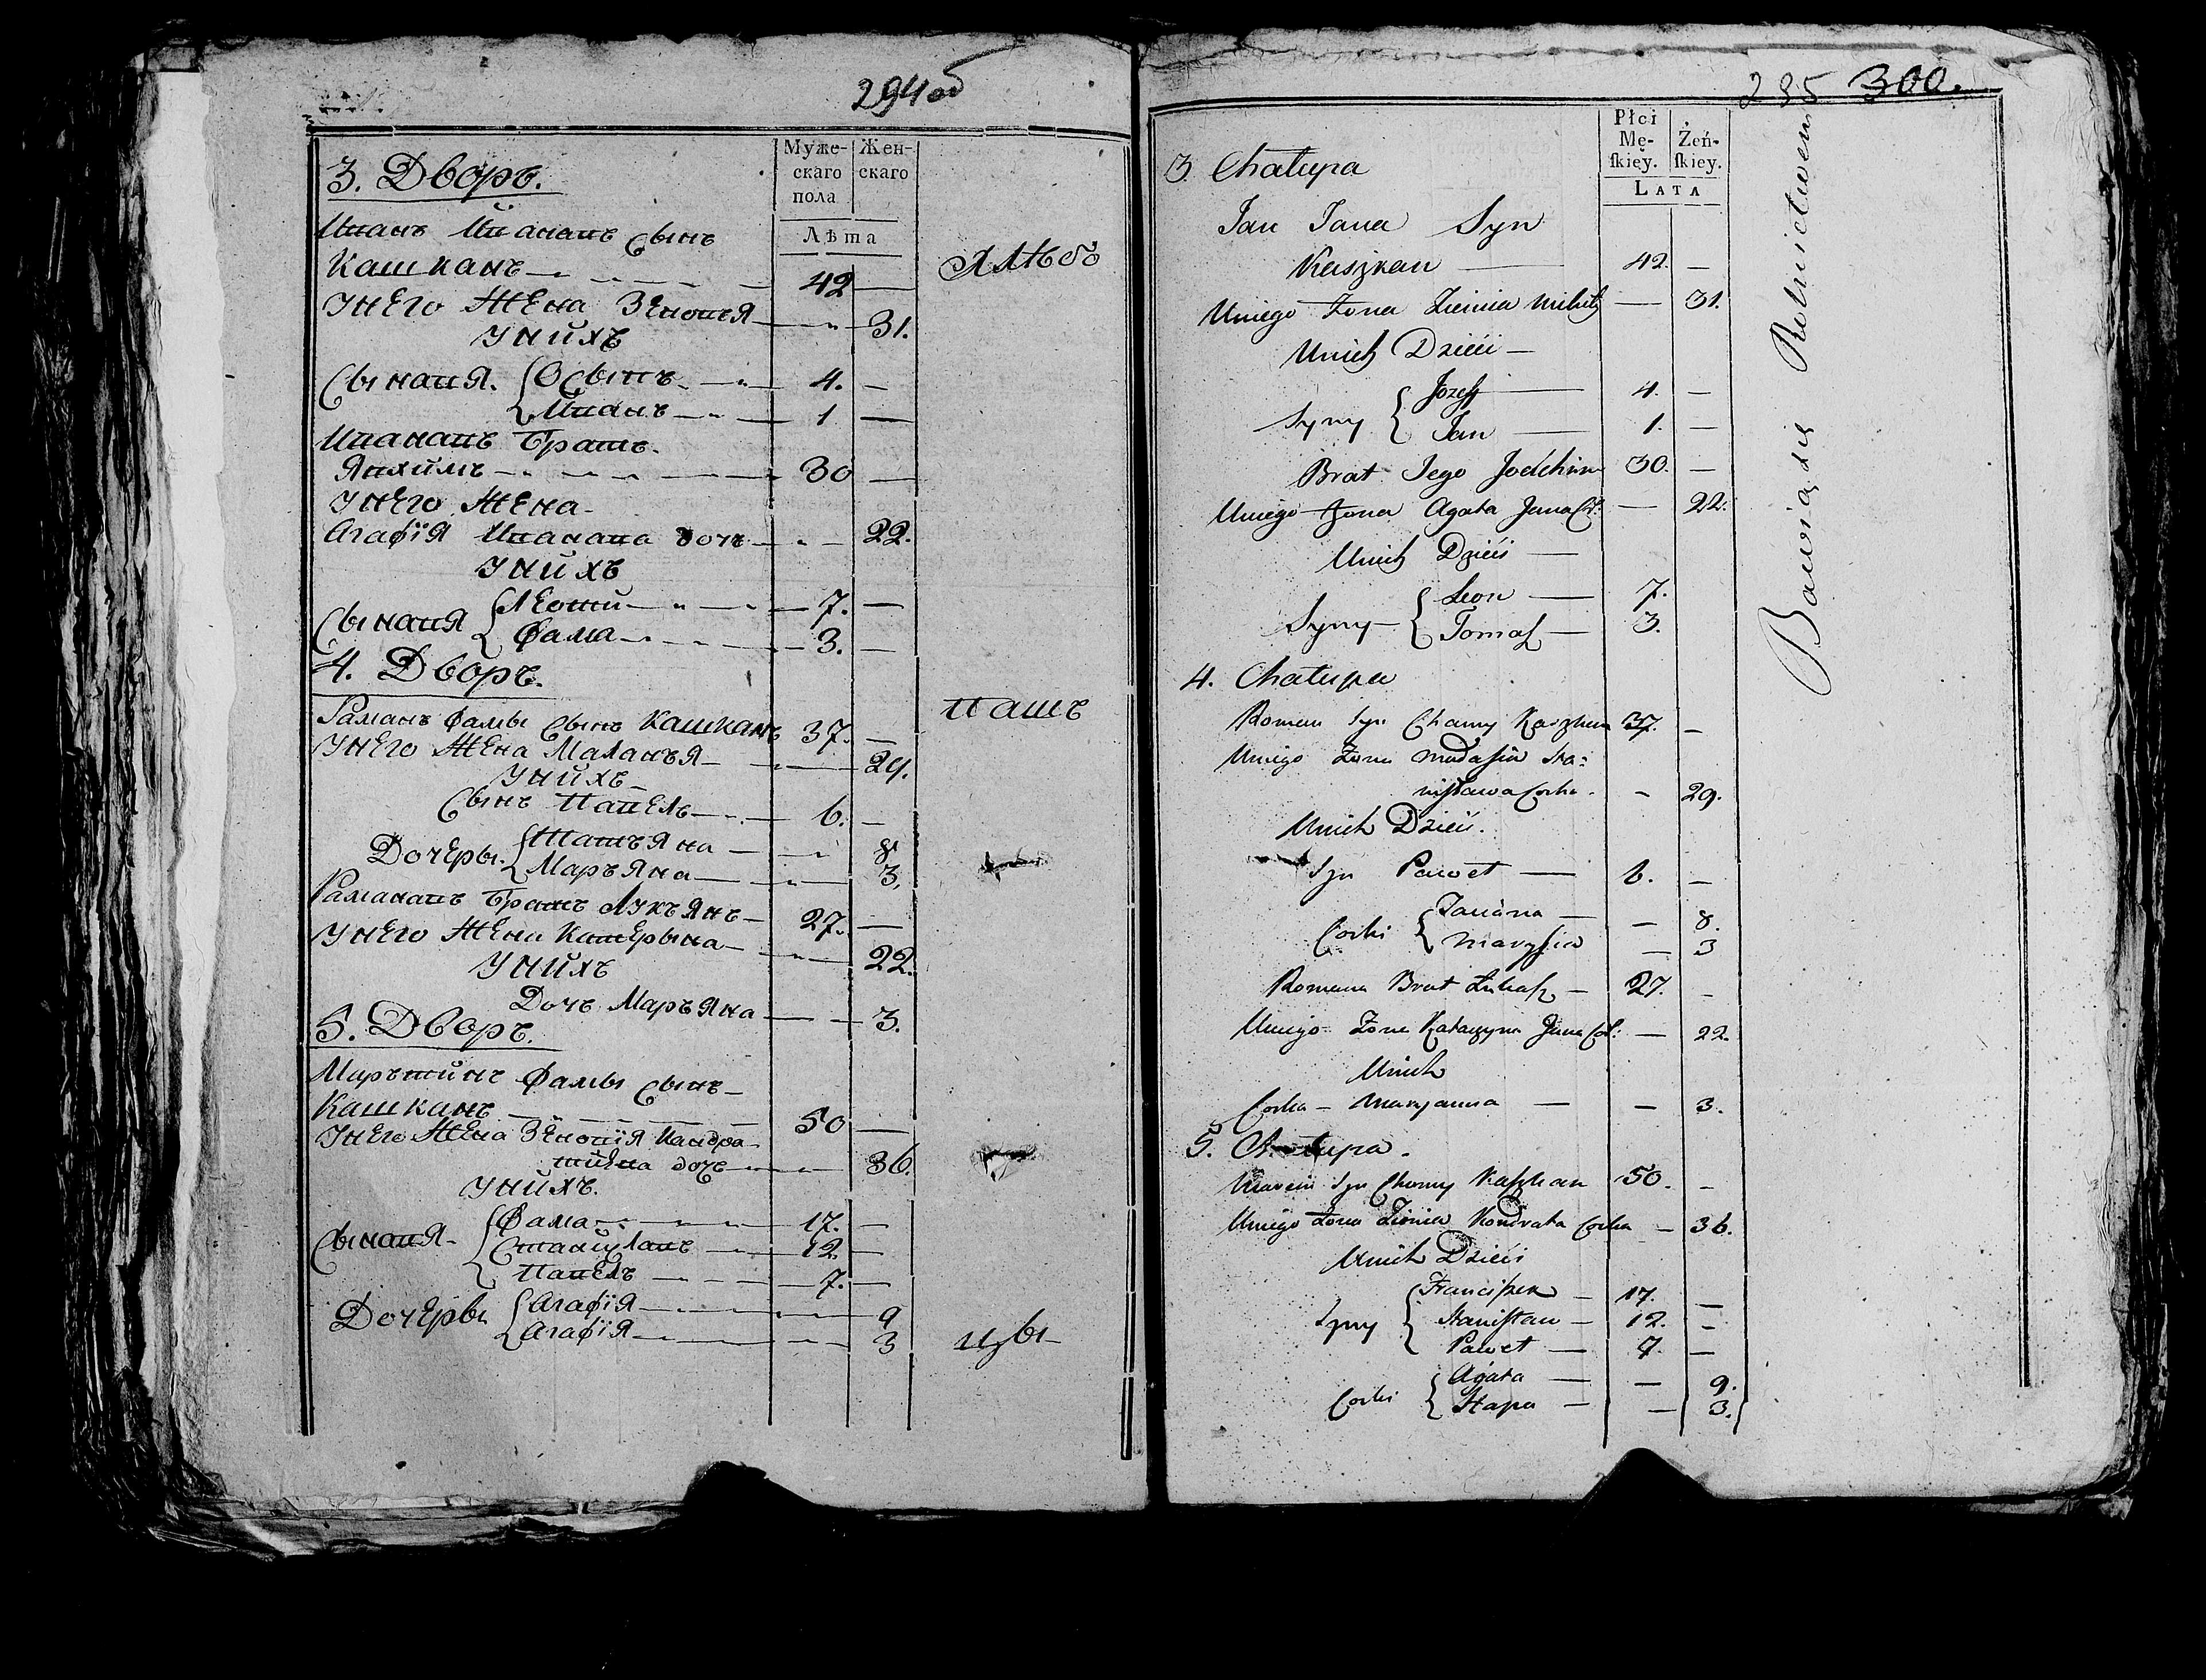 294об
3. Дворъ.
Муже-
скаго
пола
Жен-
скаго
Лѣта
Иванъ Ивановъ Сынъ
Кашканъ 42 —
Унего Жена Зеновья — 31.
Унихъ
Сыновья. Осыпъ 4. —
Иванъ 1 —
Ивановъ Братъ.
Яхимъ 30 —
Унего Жена
Агафія Иванова дочь — 22.
Унихъ
Сыновья Леонъ 7. —
Фама 3. —
4. Дворъ.
Раманъ Фамы Сынъ Кашканъ 37. —
Унего Жена Маланья — 29.
Унихъ
Сынъ Павелъ 6. —
Дочеры. Татьяна — 8
Марьяна — 3.
Раманавъ Братъ Лукьянъ 27. —
Унего Жена Катерына — 22.
Унихъ
Дочь Марьяна — 3.
5. Дворъ.
Марътинъ Фамы Сынъ
Кашканъ 50 —
Унего Жена Зеновія Кандра-
тьева дочь — 36.
Унихъ.
Сыновья Фама 17. —
Станиславъ 12. —
Павелъ 7. —
Дочеры Агафія — 9
Агафія — 3
Хлѣбо
паш
цы
295 300.
3. Chałupa
Płci
Mę-
skiey.
Żeń-
skiey.
Lata
Jan Jana Syn
Kaszkan 42. —
Uniego Żona Zienia — 31.
Unich Dzieci —
Syny Jozef 4. —
Jan 1. —
Brat Jego Joachim 30. —
Uniego Żona Agata Jana Cor: — 22.
Unich Dzieci —
Syny Leon 7.
Tomasz 3.
4. Chałupa
Roman Syn Chomy Kaszkan 37. —
Uniego Żona Sta:
nisława Corka. — 29.
Unich Dzieci.
Syn Paweł 6. —
Corki Taciana — 8.
Marysia — 3
Romana Brat Łukasz 27. —
Uniego Żona Katarzyna Jana Cor: — 22.
Unich
Corka — Maryanna — 3.
5. Chałupa.
Marcin Syn Chomy Kaszkan 50. —
Uniego Żona Zienia Kondrata Corka — 36.
Unich Dzieci
Syny Franciszek 17. —
Stanisław 12. —
Paweł 7. —
Corki Agata — 9.
Hapa — 3.
Bawią się Rolnictwem